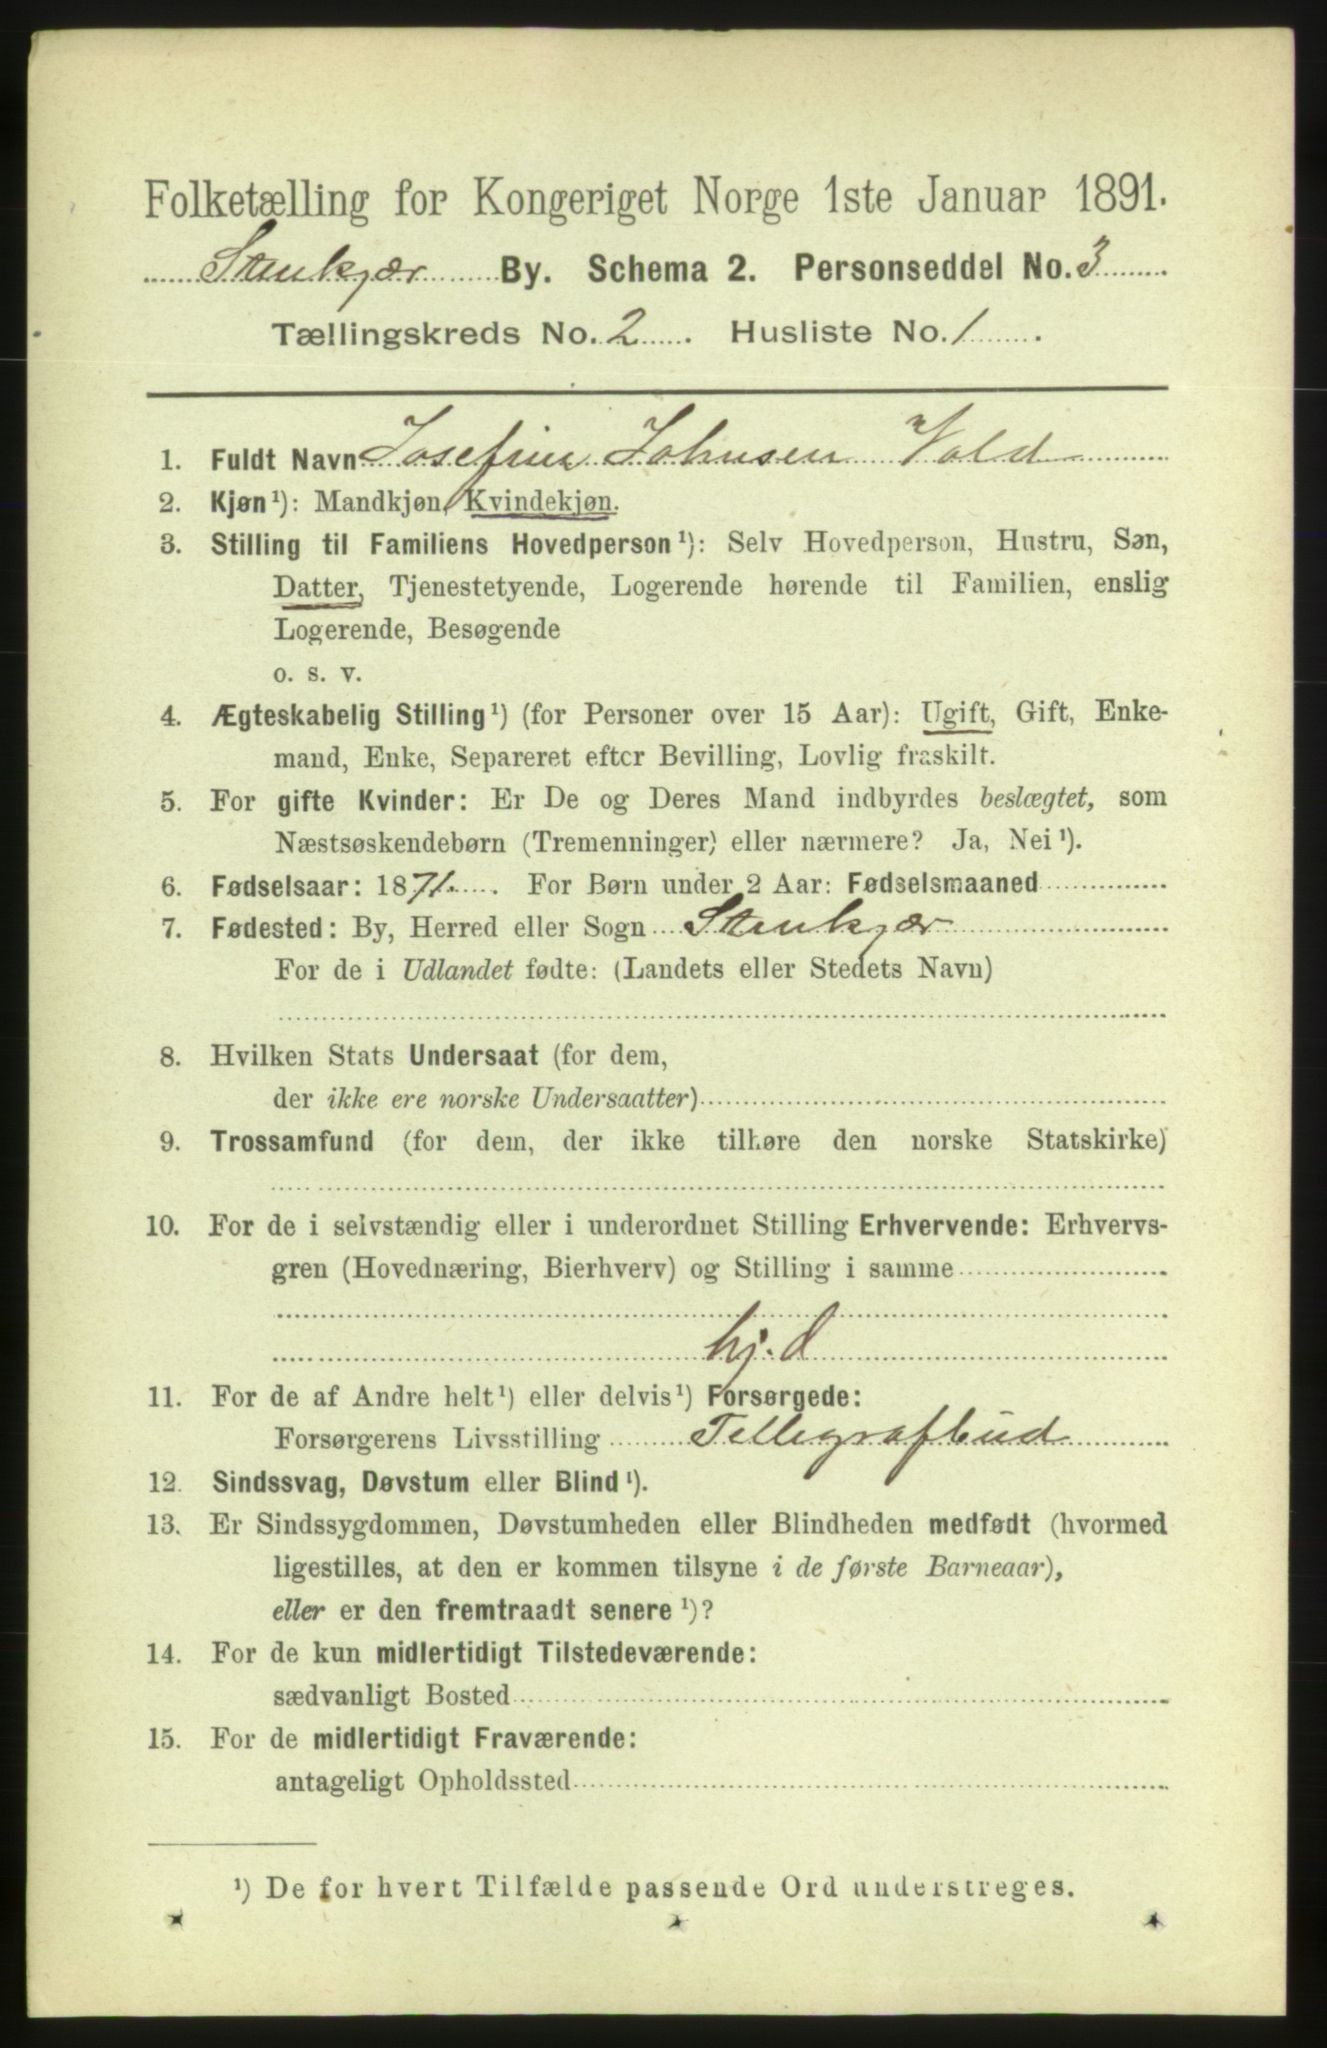 Folketælling for Kongeriget Norge 1ste Januar 1891.
Stenkjær By. Schema 2. Personseddel No. 3
Tællingskreds No. 2. Husliste No. 1.
1. Fuldt Navn Josefine Johnsen Vold
2. Kjøn¹): Mandkjøn, Kvindekjøn.
3. Stilling til Familiens Hovedperson¹): Selv Hovedperson, Hustru, Søn,
Datter, Tjenestetyende, Logerende hørende til Familien, enslig
Logerende, Besøgende
o. s. v.
4. Ægteskabelig Stilling¹) (for Personer over 15 Aar): Ugift, Gift, Enke-
mand, Enke, Separeret efter Bevilling, Lovlig fraskilt.
5. For gifte Kvinder: Er De og Deres Mand indbyrdes beslægtet, som
Næstsøskendebørn (Tremenninger) eller nærmere? Ja, Nei¹).
6. Fødselsaar: 1871. For Børn under 2 Aar: Fødselsmaaned
7. Fødested: By, Herred eller Sogn Stenkjær
For de i Udlandet fødte: (Landets eller Stedets Navn)
8. Hvilken Stats Undersaat (for dem,
der ikke ere norske Undersaatter)
9. Trossamfund (for dem, der ikke tilhøre den norske Statskirke)
10. For de i selvstændig eller i underordnet Stilling Erhvervende: Erhvervs-
gren (Hovednæring, Bierhverv) og Stilling i samme
hj. d
11. For de af Andre helt¹) eller delvis¹) Forsørgede:
Forsørgerens Livsstilling Tellegrafbud
12. Sindssvag, Døvstum eller Blind¹).
13. Er Sindssygdommen, Døvstumheden eller Blindheden medfødt (hvormed
ligestilles, at den er kommen tilsyne i de første Barneaar),
eller er den fremtraadt senere¹)?
14. For de kun midlertidigt Tilstedeværende:
sædvanligt Bosted
15. For de midlertidigt Fraværende:
antageligt Opholdssted
¹) De for hvert Tilfælde passende Ord understreges.